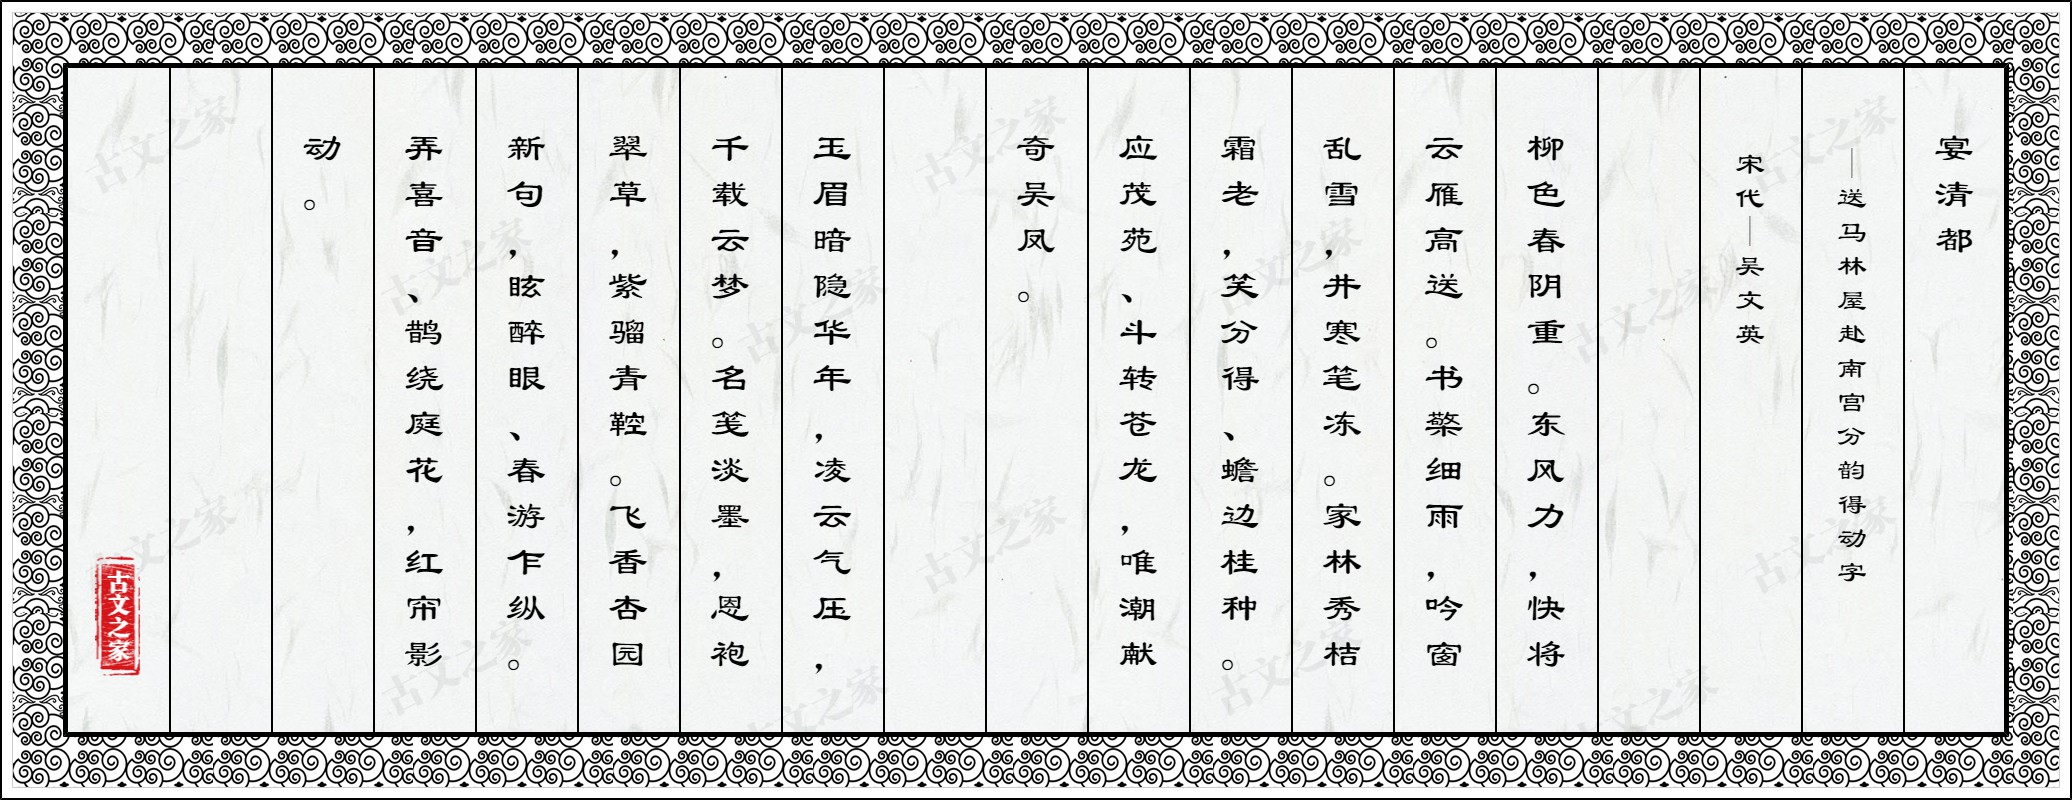 宴清都
——送马林屋赴南宫分韵得动字
宋代——吴文英
柳色春阴重。东风力，快将
云雁高送。书檠细雨，吟窗
乱雪，井寒笔冻。家林秀桔
霜老，笑分得、蟾边桂种。
应茂苑、斗转苍龙，唯潮献
奇吴凤。
玉眉暗隐华年，凌云气压，
千载云梦。名笺淡墨，恩袍
翠草，紫骝青鞚。飞香杏园
新句，眩醉眼、春游乍纵。
弄喜音、鹊绕庭花，红帘影
动。
古文之家